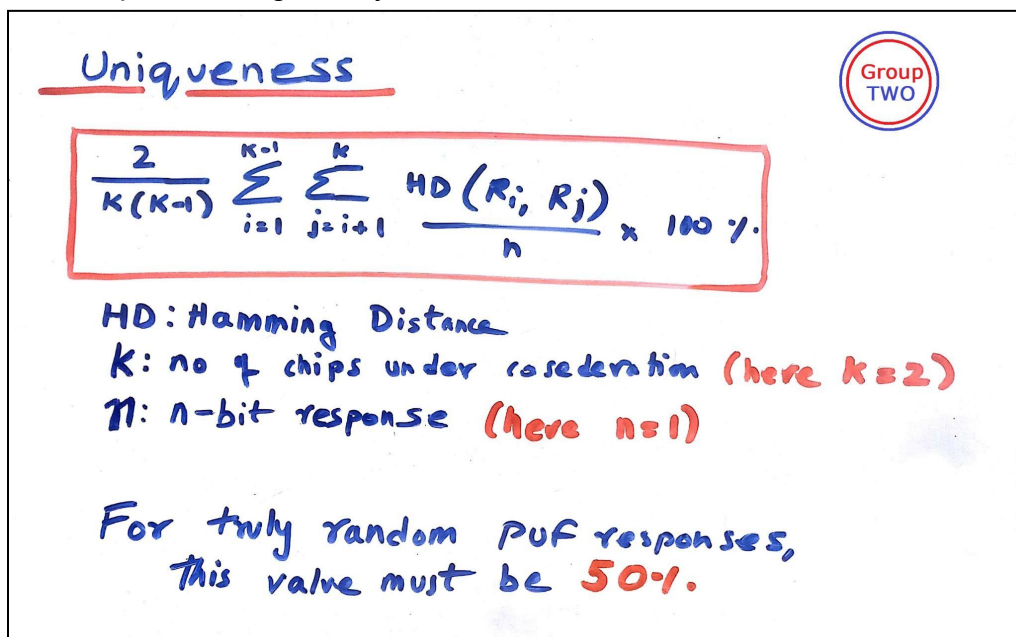 Uniqueness
Group
TWO
2/K(K-1) K-1∑i=1 k∑j=i+1 HD(Ri, Rj)/n × 100 %.
HD: Hamming Distance
K: no of chips under cosederation (here k=2)
n: n-bit response (here n=1)
For truly random PUF responses,
This value must be 50%.